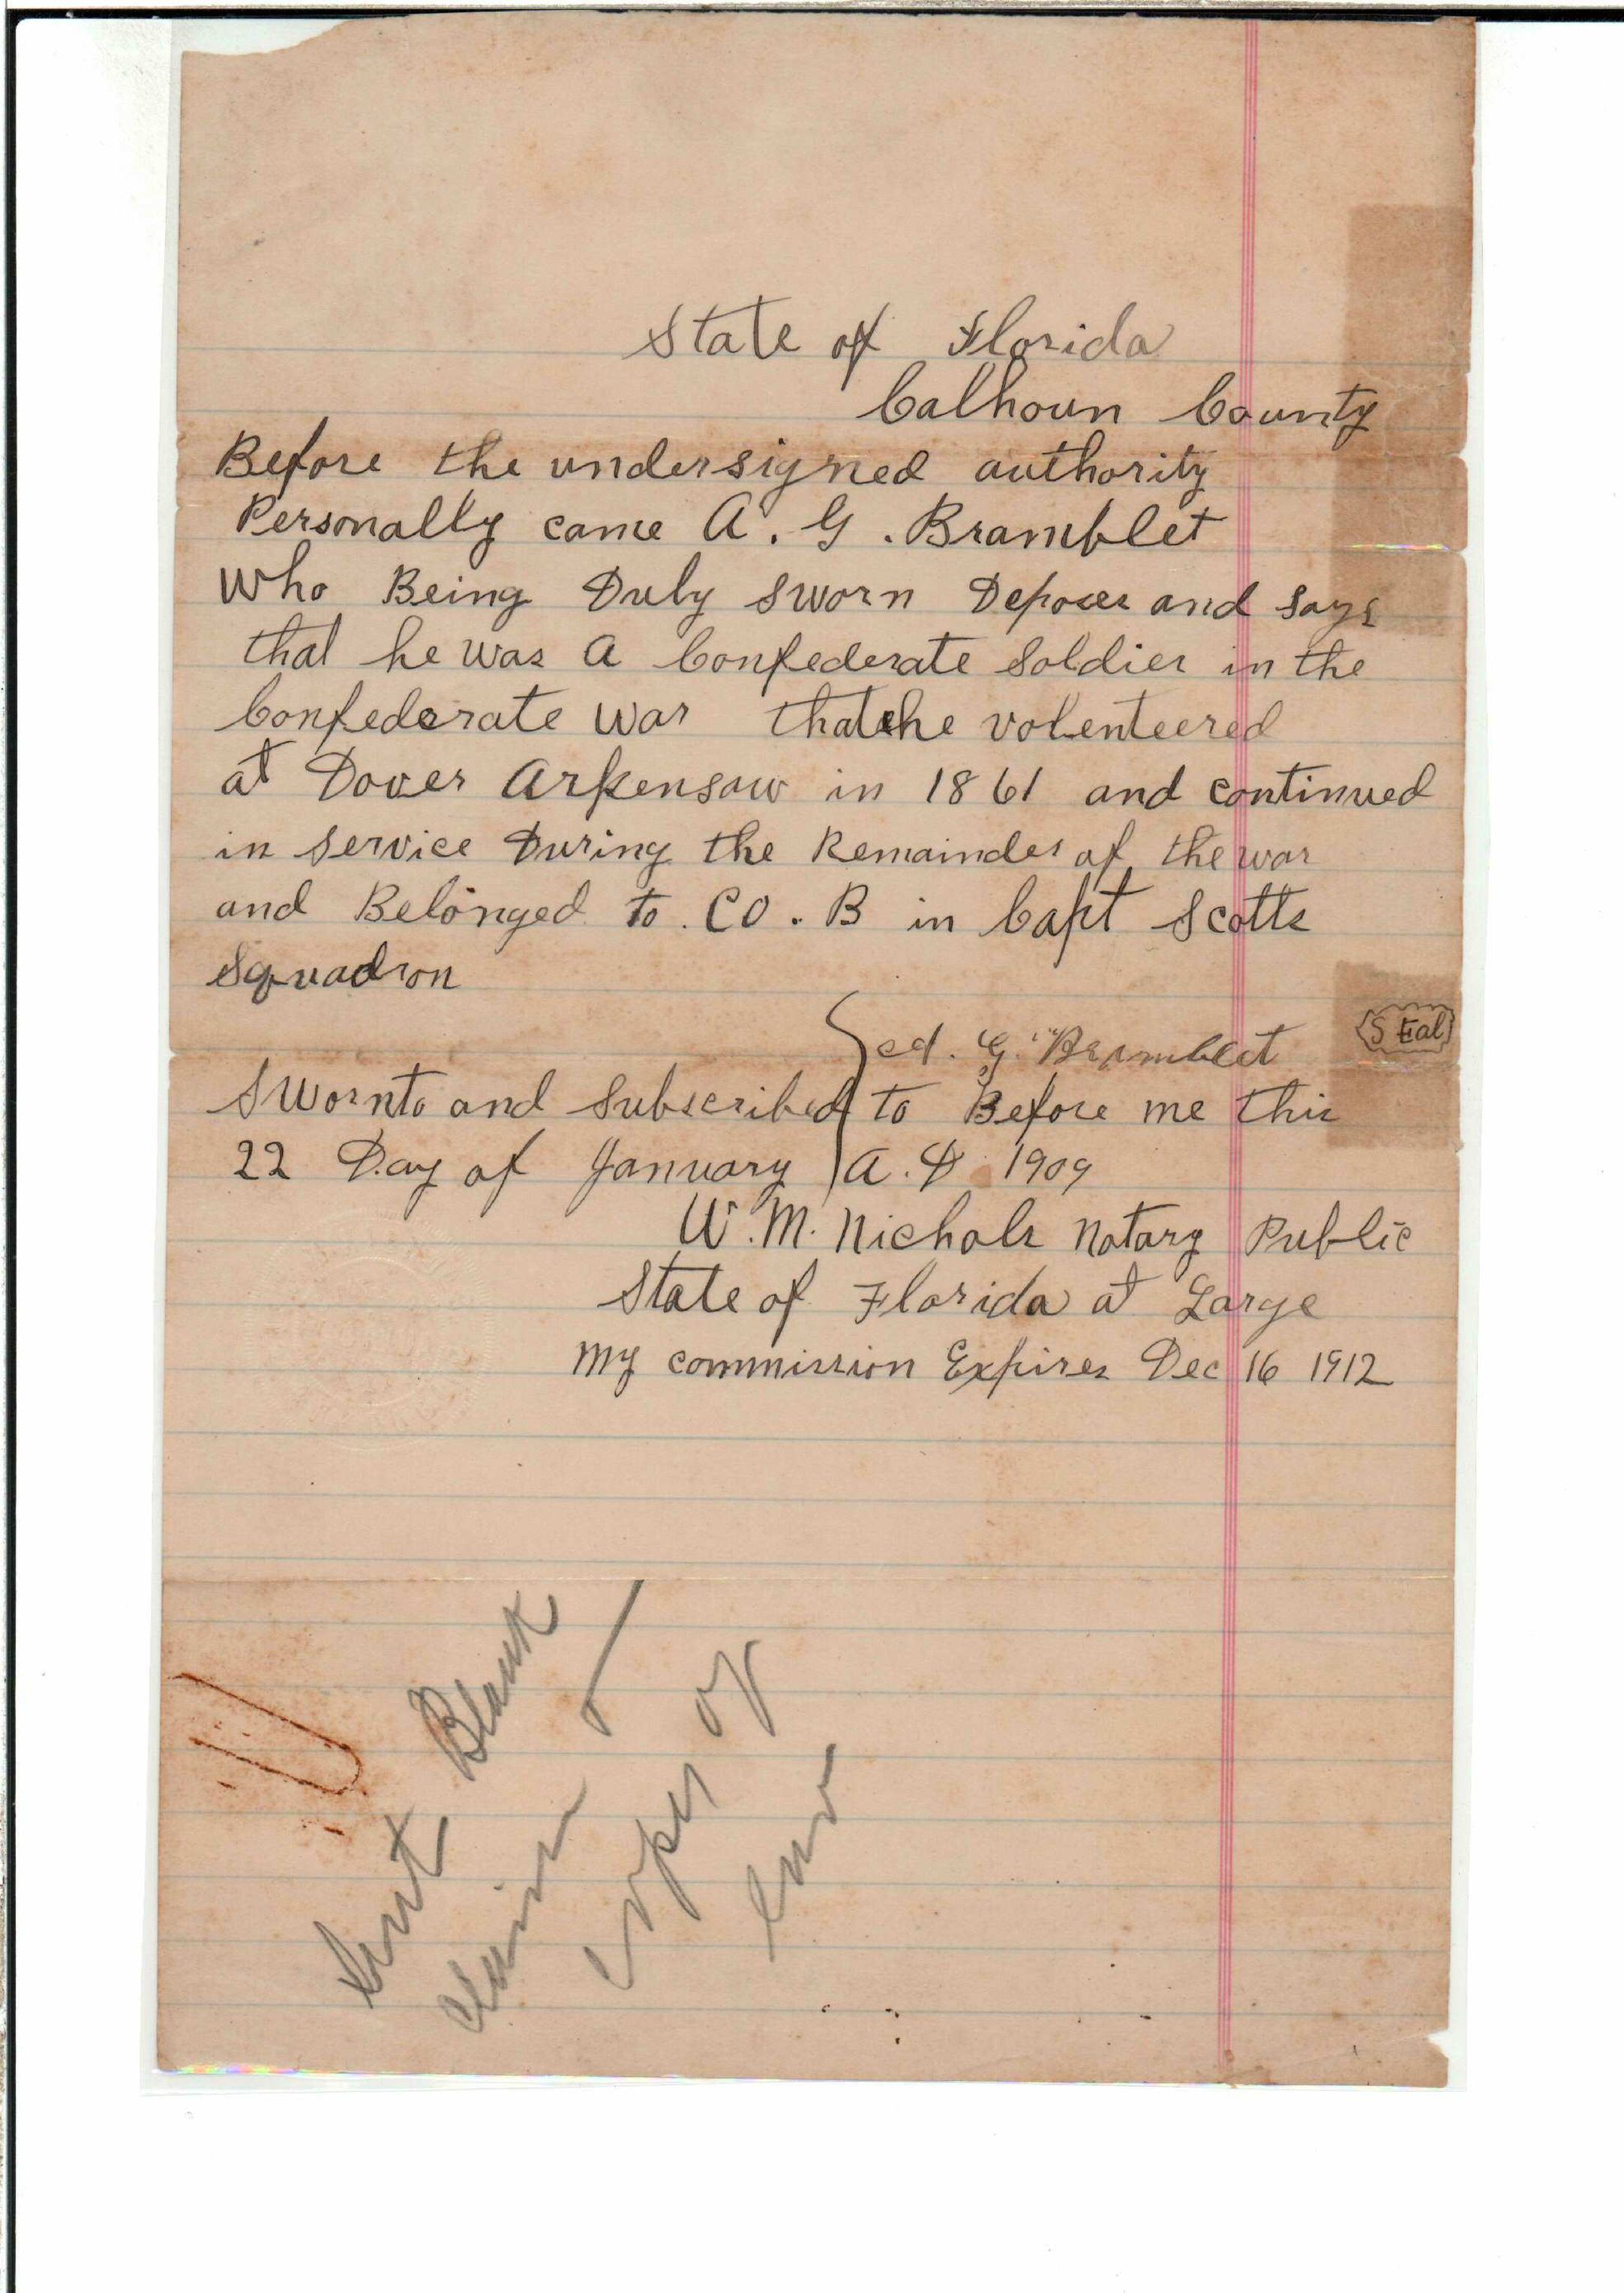 State of Florida
Calhoun County
Before the undersigned authority
Personally came A. G. Bramblet
Who Being Duly sworn Deposes and says
that he was A Confederate Soldier in the
Confederate war that he volenteered
at Dover Arkensaw in 1861 and continued
in service During the Remainder of the war
and Belonged to Co. B in Capt Scotts
Squadron
A. G. Bramblet {Seal}
Sworn to and Subscribed to Before me this
22 Day of January A. D. 1909
W. M. Nichols Notary Public
State of Florida at Large
My commission Expires Dec 16 1912
Sent Blank
claim
copy of
Law